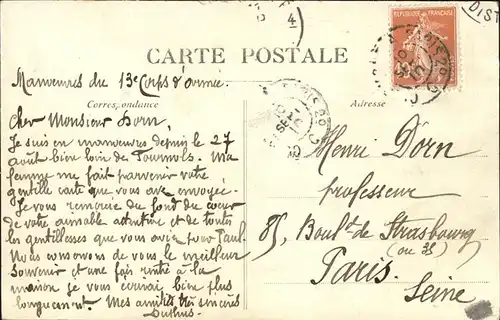 CARTE POSTALE
REPUBLIQUE FRANÇAISE
Manœuvres du 13e Corps d'armée.
Correspondance
Adresse
Cher Monsieur Dorn,
Je suis en manœuvres depuis le 27
août bien loin de Tournols. Ma
femme me fait parvenir votre
gentille carte que vous avez envoyée.
Je vous remercie du fond du cœur
de votre aimable attention et de toutes
les gentillesses que vous avez pour Paul.
Nous conservons de vous le meilleur
souvenir et une fois rentré à la
maison je vous écrirai bien plus
longuement. Mes amitiés très sincères
Henri Dorn
professeur
85, Boul.d de Strasbourg
(ou 35)
Paris.
Seine